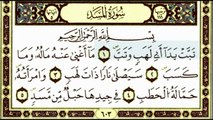 سورة المسد
بسم الله الرحمن الرحيم
تبت يدا أبي لهب وتب ١ ما أغنى عنه ماله وما
كسب ٢ سيصلى نارا ذات لهب ٣ وامرأته
حمالة الحطب ٤ في جيدها حبل من مسد ٥
٦٠٣